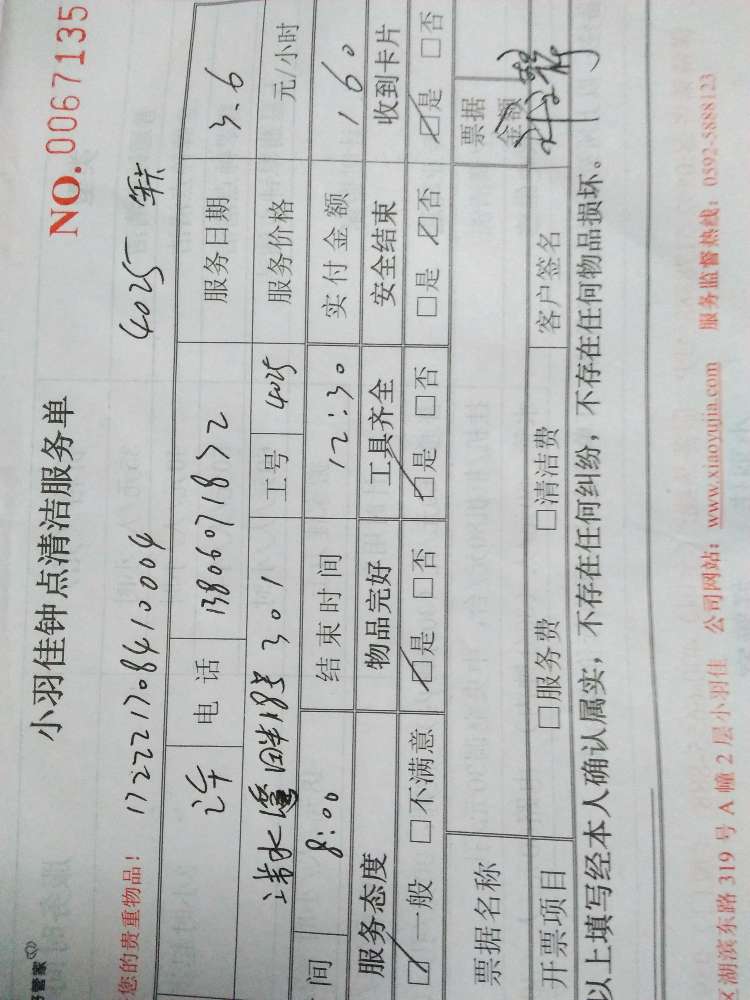 小羽佳钟点清洁服务单
NO.0067135
管家
您的贵重物品! 172221708410004 4025
许 电话 13806071832 服务日期 3.6
清水 畔 18号 301 工号 4025 服务价格 元/小时
间 8:00 结束时间 12:30 实付金额 160
服务态度 物品完好 工具齐全 安全结束 收到卡片
☑一般 □不满意 ☑是 □否 ☑是 □否 □是 ☑否 ☑是 □否
票据名称 票据金额
开票项目 □服务费 □清洁费 客户签名
以上填写经本人确认属实,不存在任何纠纷,不存在任何物品损坏。
区湖滨东路 319 号 A 幢 2 层小羽佳 公司网站:www.xiaoyujia.com 服务监督热线:0592-5888123